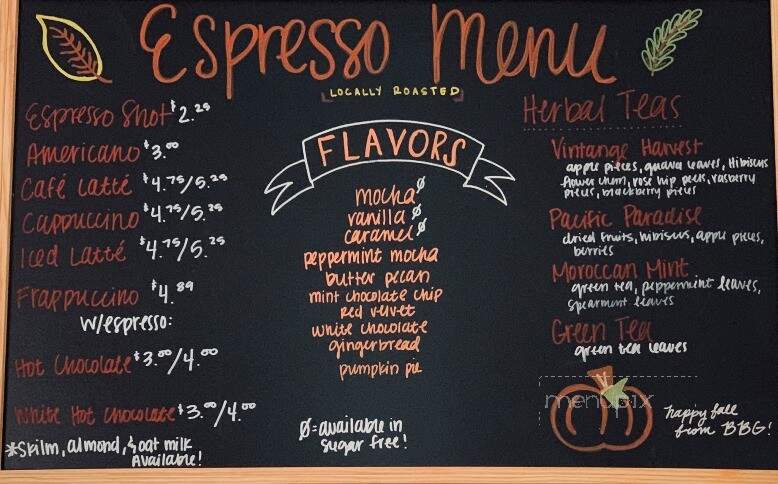 Espresso Menu
LOCALLY ROASTED
Espresso Shot $2.25
Americano $3.00
Café Latté $4.75/5.25
Cappuccino $4.75/5.25
Iced Latté $4.75/5.25
Frappuccino $4.89
w/espresso:
Hot Chocolate $3.00/4.00
White Hot Chocolate $3.00/4.00
*Skilm, almond, & oat milk
Available!
FLAVORS
mocha Ø
vanilla Ø
caramel Ø
peppermint mocha
butter pecan
mint chocolate chip
red velvet
white chocolate
gingerbread
pumpkin pie
Ø=available in
sugar free!
Herbal Teas
Vintange Harvest
apple pieces, guava leaves, Hibiscus
flower, rose hip peels, rasberry
pieces, blackberry pieces
Pacific Paradise
dried fruits, hibiscus, apple pieces,
berries
Moroccan Mint
green tea, peppermint leaves,
spearmint leaves
Green Tea
green tea leaves
menupix
happy fall
from BBG!